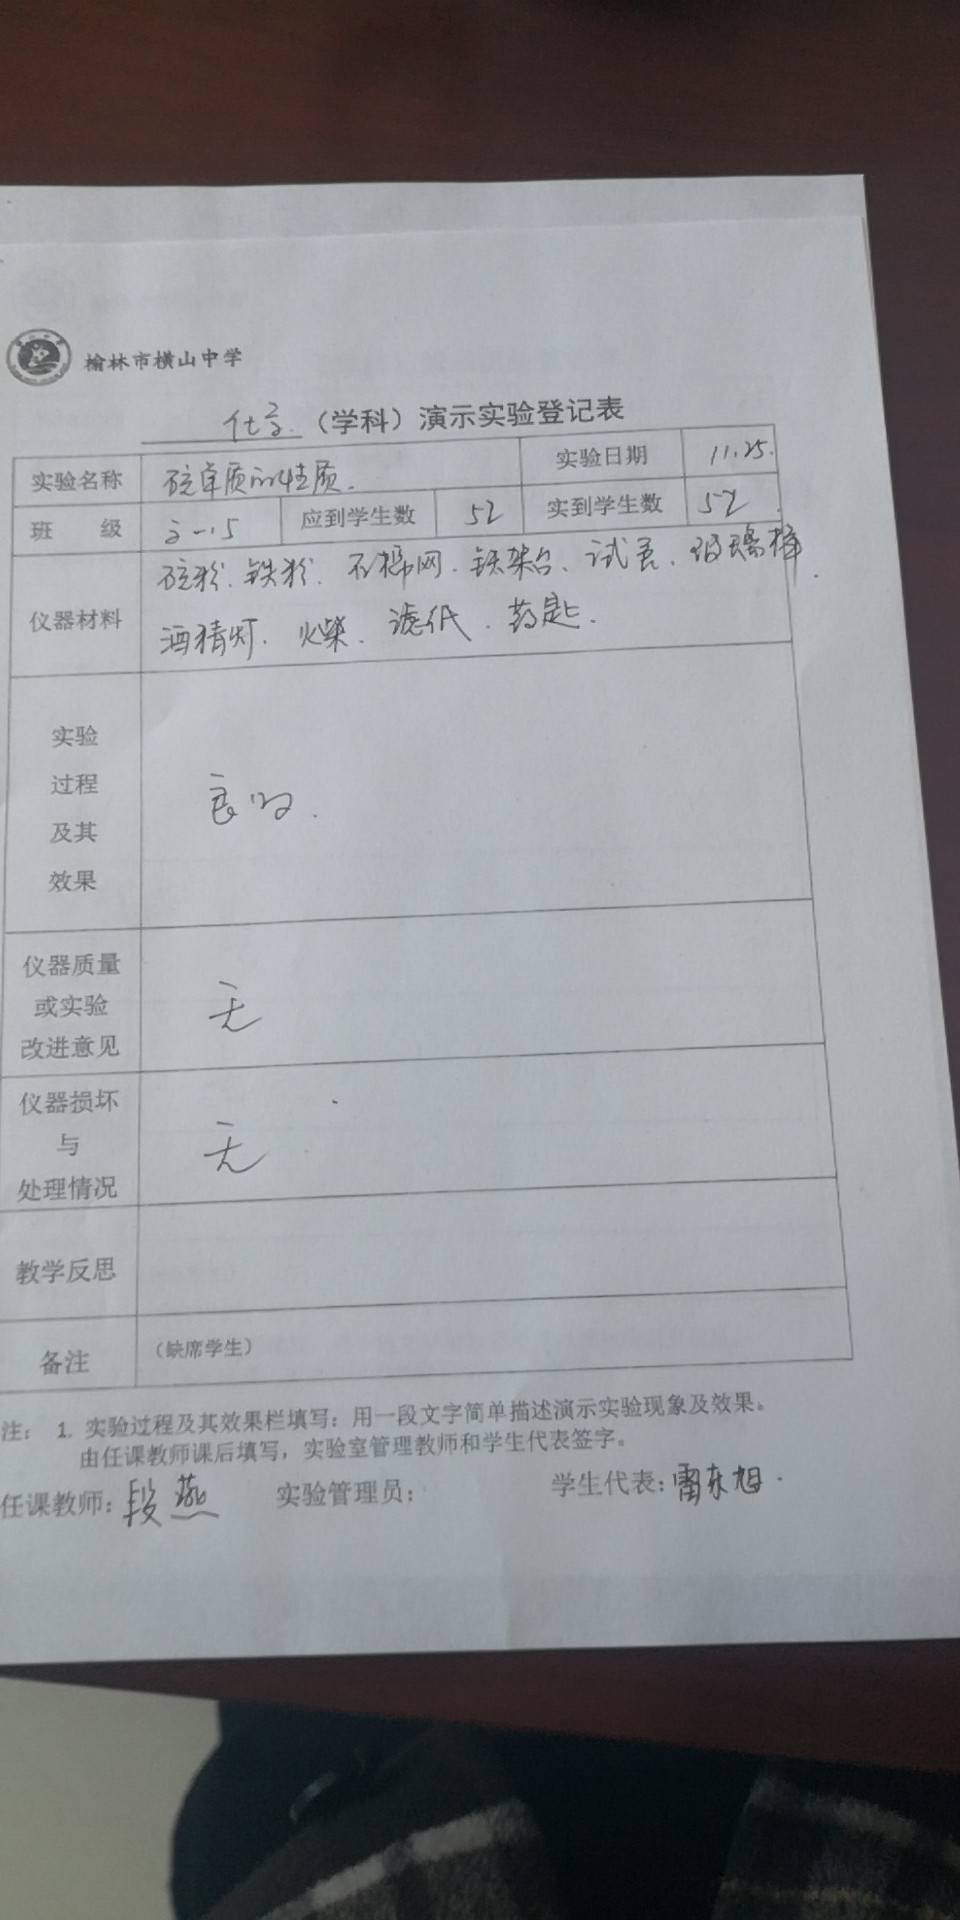 榆林市横山中学
化学（学科）演示实验登记表
实验名称 硫单质的性质. 实验日期 11.25.
班 级 高一.5 应到学生数 52 实到学生数 52
仪器材料 硫粉.铁粉.石棉网.铁架台、试管、玻璃棒.
酒精灯.火柴.滤纸.药匙.
实验
过程
及其
效果
良好.
仪器质量
或实验
改进意见
无
仪器损坏
与
处理情况
无
教学反思
备注 （缺席学生）
注： 1. 实验过程及其效果栏填写：用一段文字简单描述演示实验现象及效果。
由任课教师课后填写，实验室管理教师和学生代表签字。
任课教师：段燕 实验管理员： 学生代表：雷东旭.